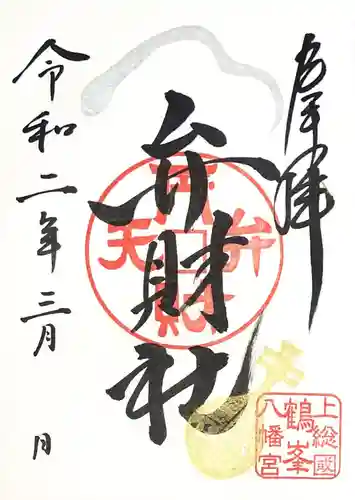 奉拝
弁財社
弁財天
令和二年三月
月
上総國
鶴峯
八幡宮